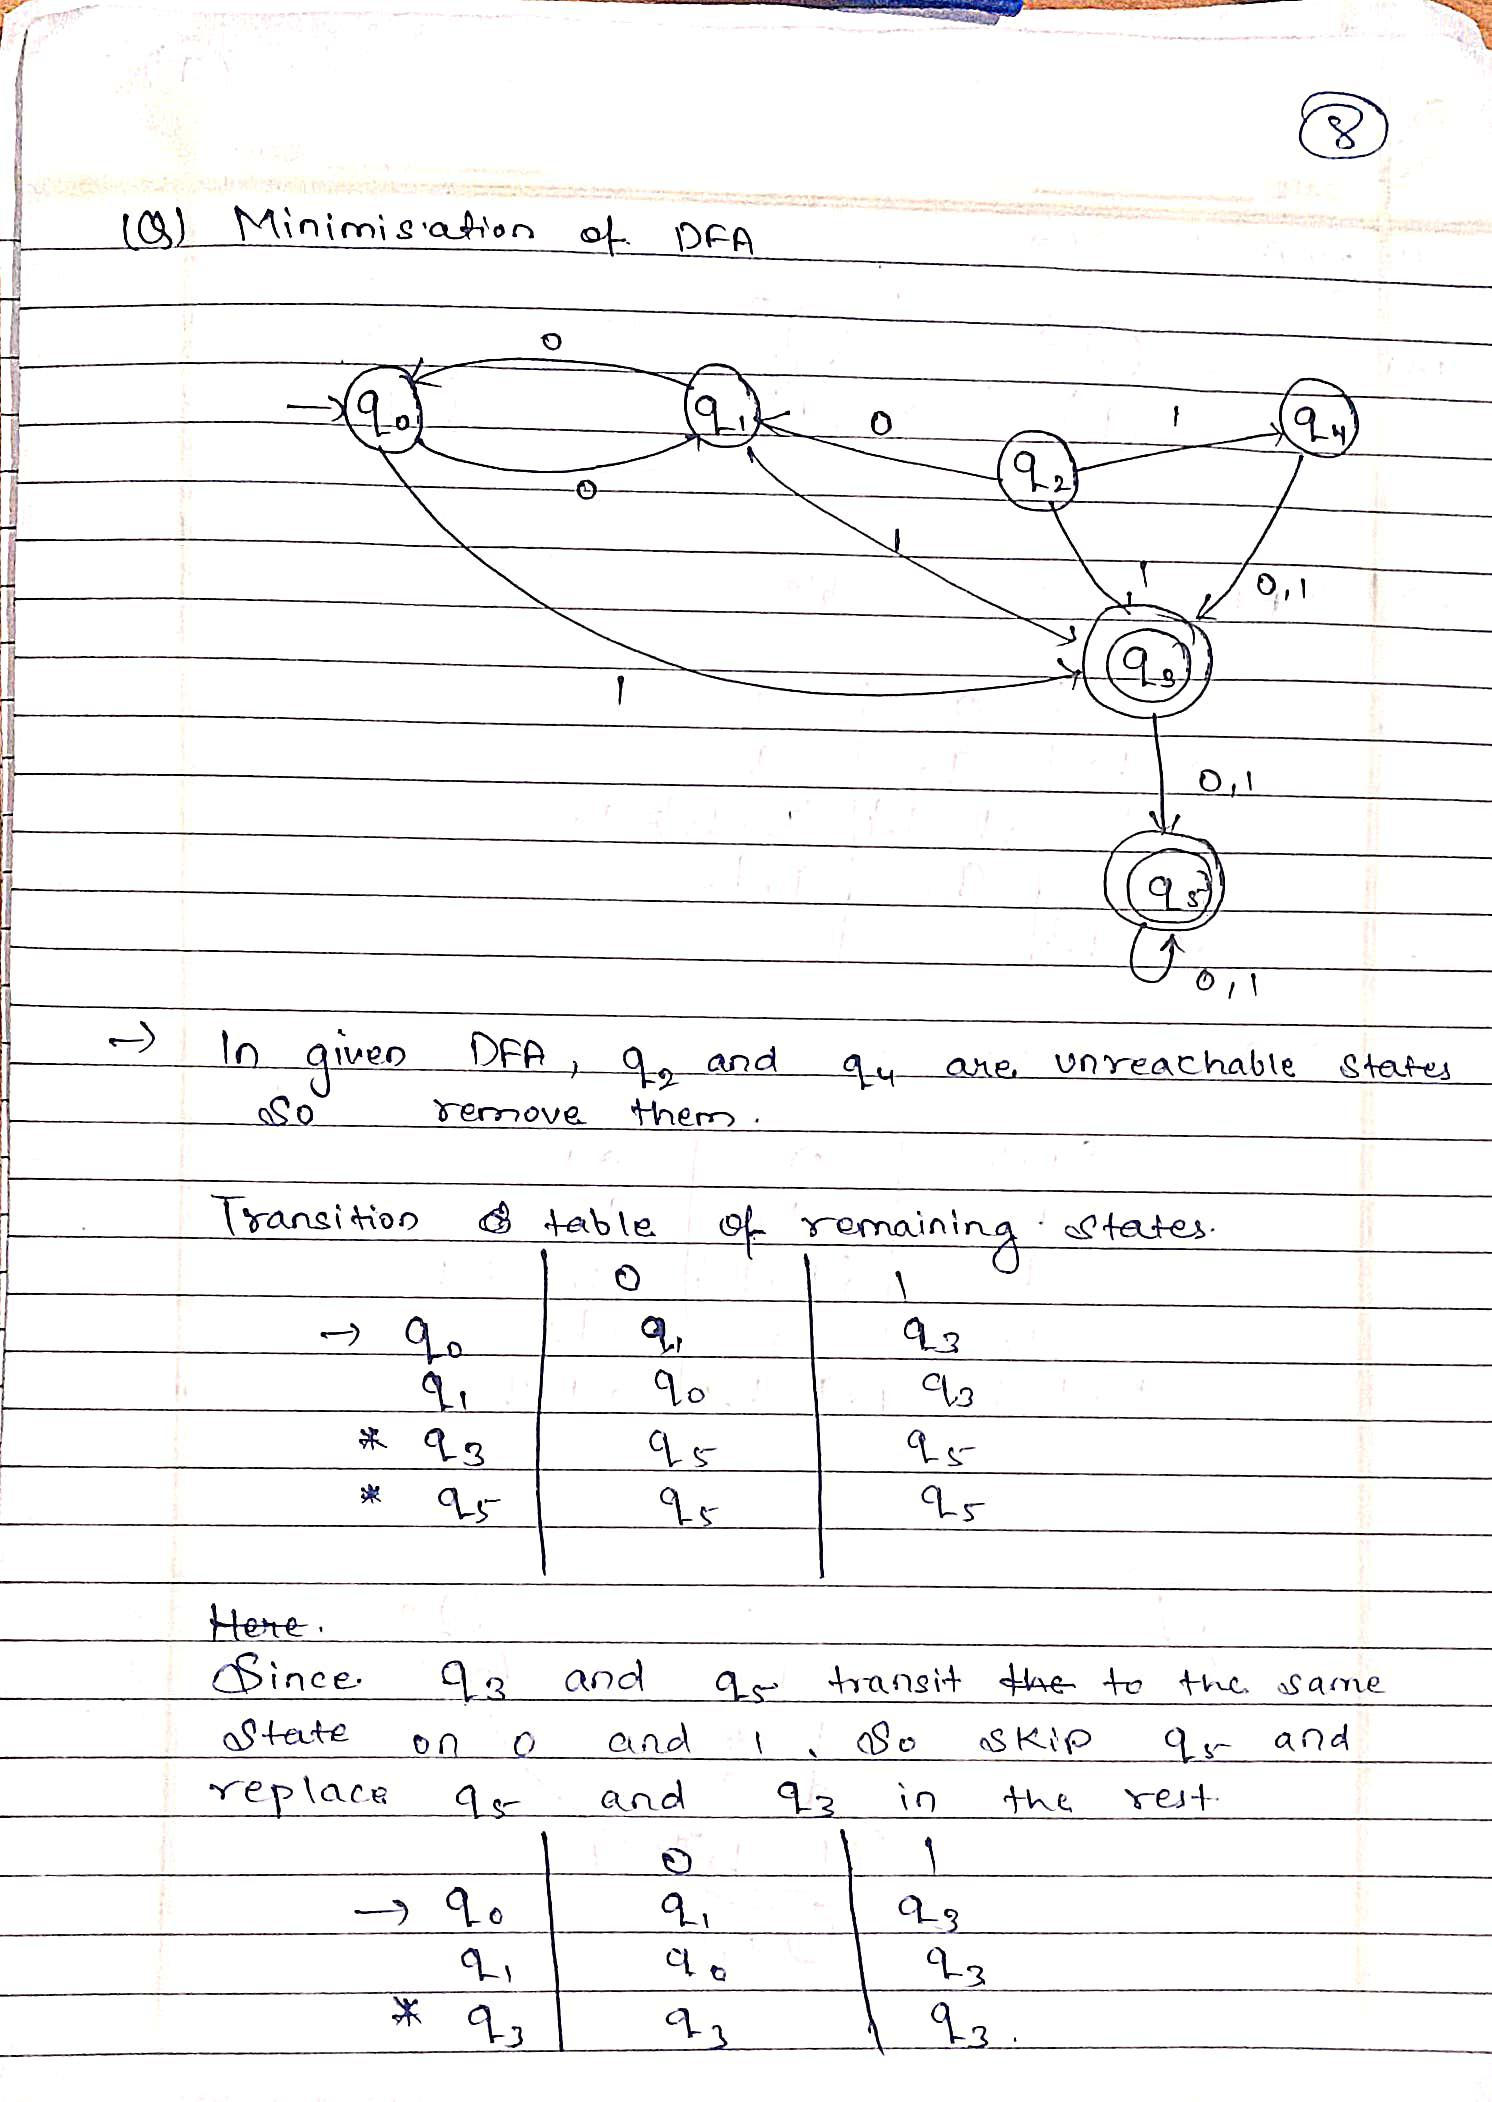 8
(Q) Minimisation of DFA
0
q0 q1 0 1 q4
q2
0
1
1 0,1
q3
1
0,1
q5
0,1
→ In given DFA, q2 and q4 are unreachable states
So remove them.
Transition table of remaining states.
0 1
→ q0 q1 q3
q1 q0 q3
* q3 q5 q5
* q5 q5 q5
Here.
Since q3 and q5 transit the to the same
state on 0 and 1, So skip q5 and
replace q5 and q3 in the rest.
0 1
→ q0 q1 q3
q1 q0 q3
* q3 q3 q3.